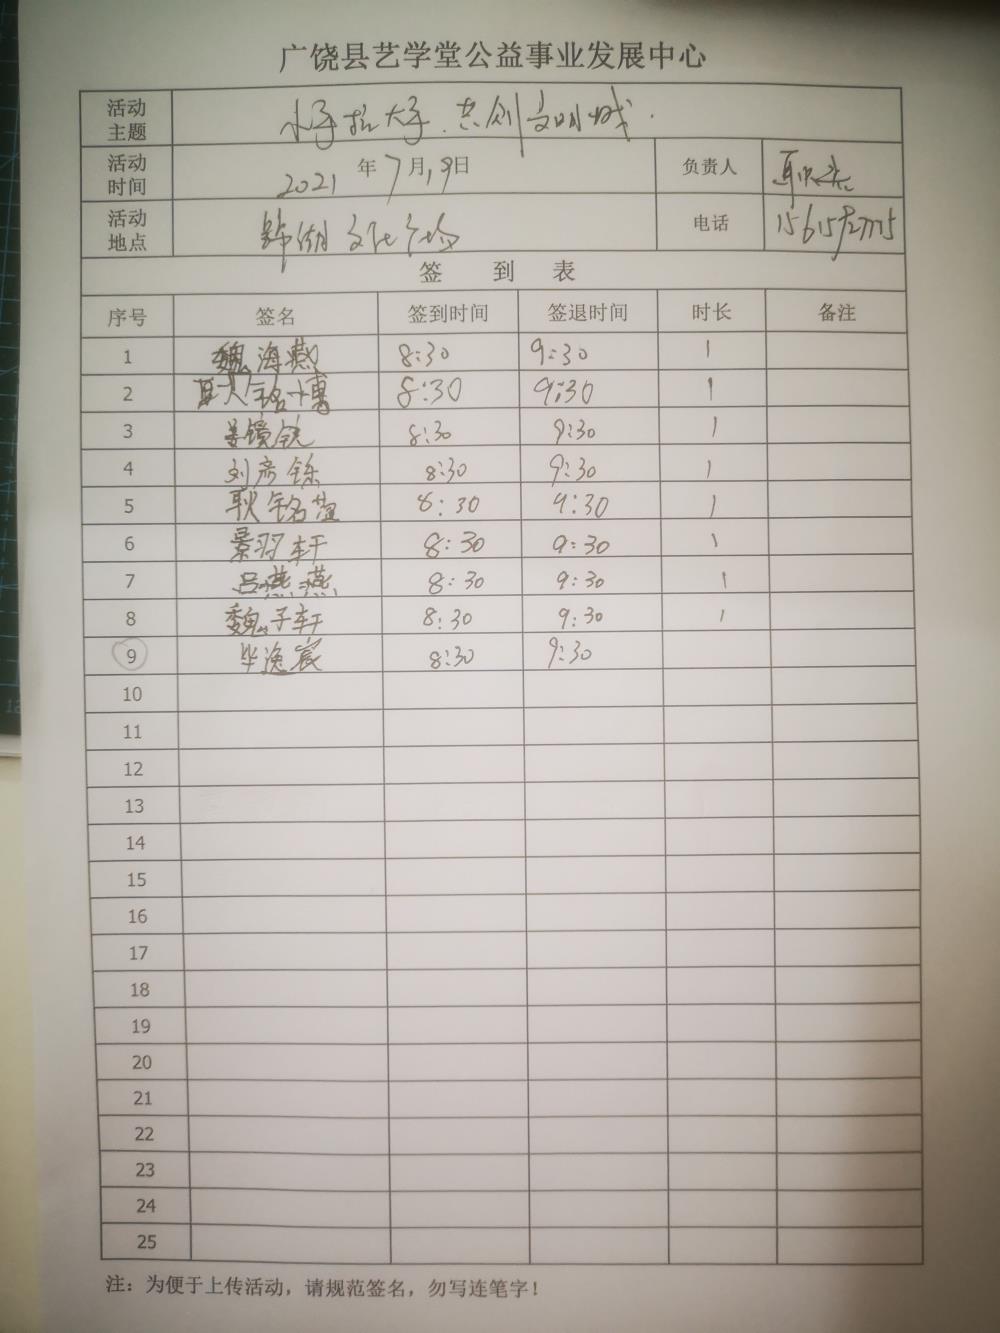 广饶县艺学堂公益事业发展中心
活动主题 小手拉大手.共创文明城.
活动时间 2021年7月19日 负责人
活动地点 锦湖文化广场 电话
签到表
序号 签名 签到时间 签退时间 时长 备注
1 魏海燕 8:30 9:30 1
2 耿铭博 8:30 9:30 1
3 姜镜铣 8:30 9:30 1
4 刘彦铄 8:30 9:30 1
5 耿铭萱 8:30 9:30 1
6 景羽轩 8:30 9:30 1
7 吕燕燕 8:30 9:30 1
8 魏子轩 8:30 9:30 1
9 毕逸宸 8:30 9:30
10
11
12
13
14
15
16
17
18
19
20
21
22
23
24
25
注：为便于上传活动，请规范签名，勿写连笔字！
12